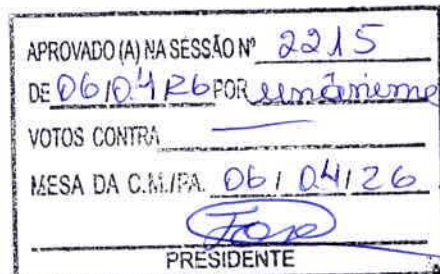 APROVADO (A) NA SESSÃO Nº 2215
DE 06/04/26 POR unânime
VOTOS CONTRA —
MESA DA C.M./PA. 06/04/26
PRESIDENTE